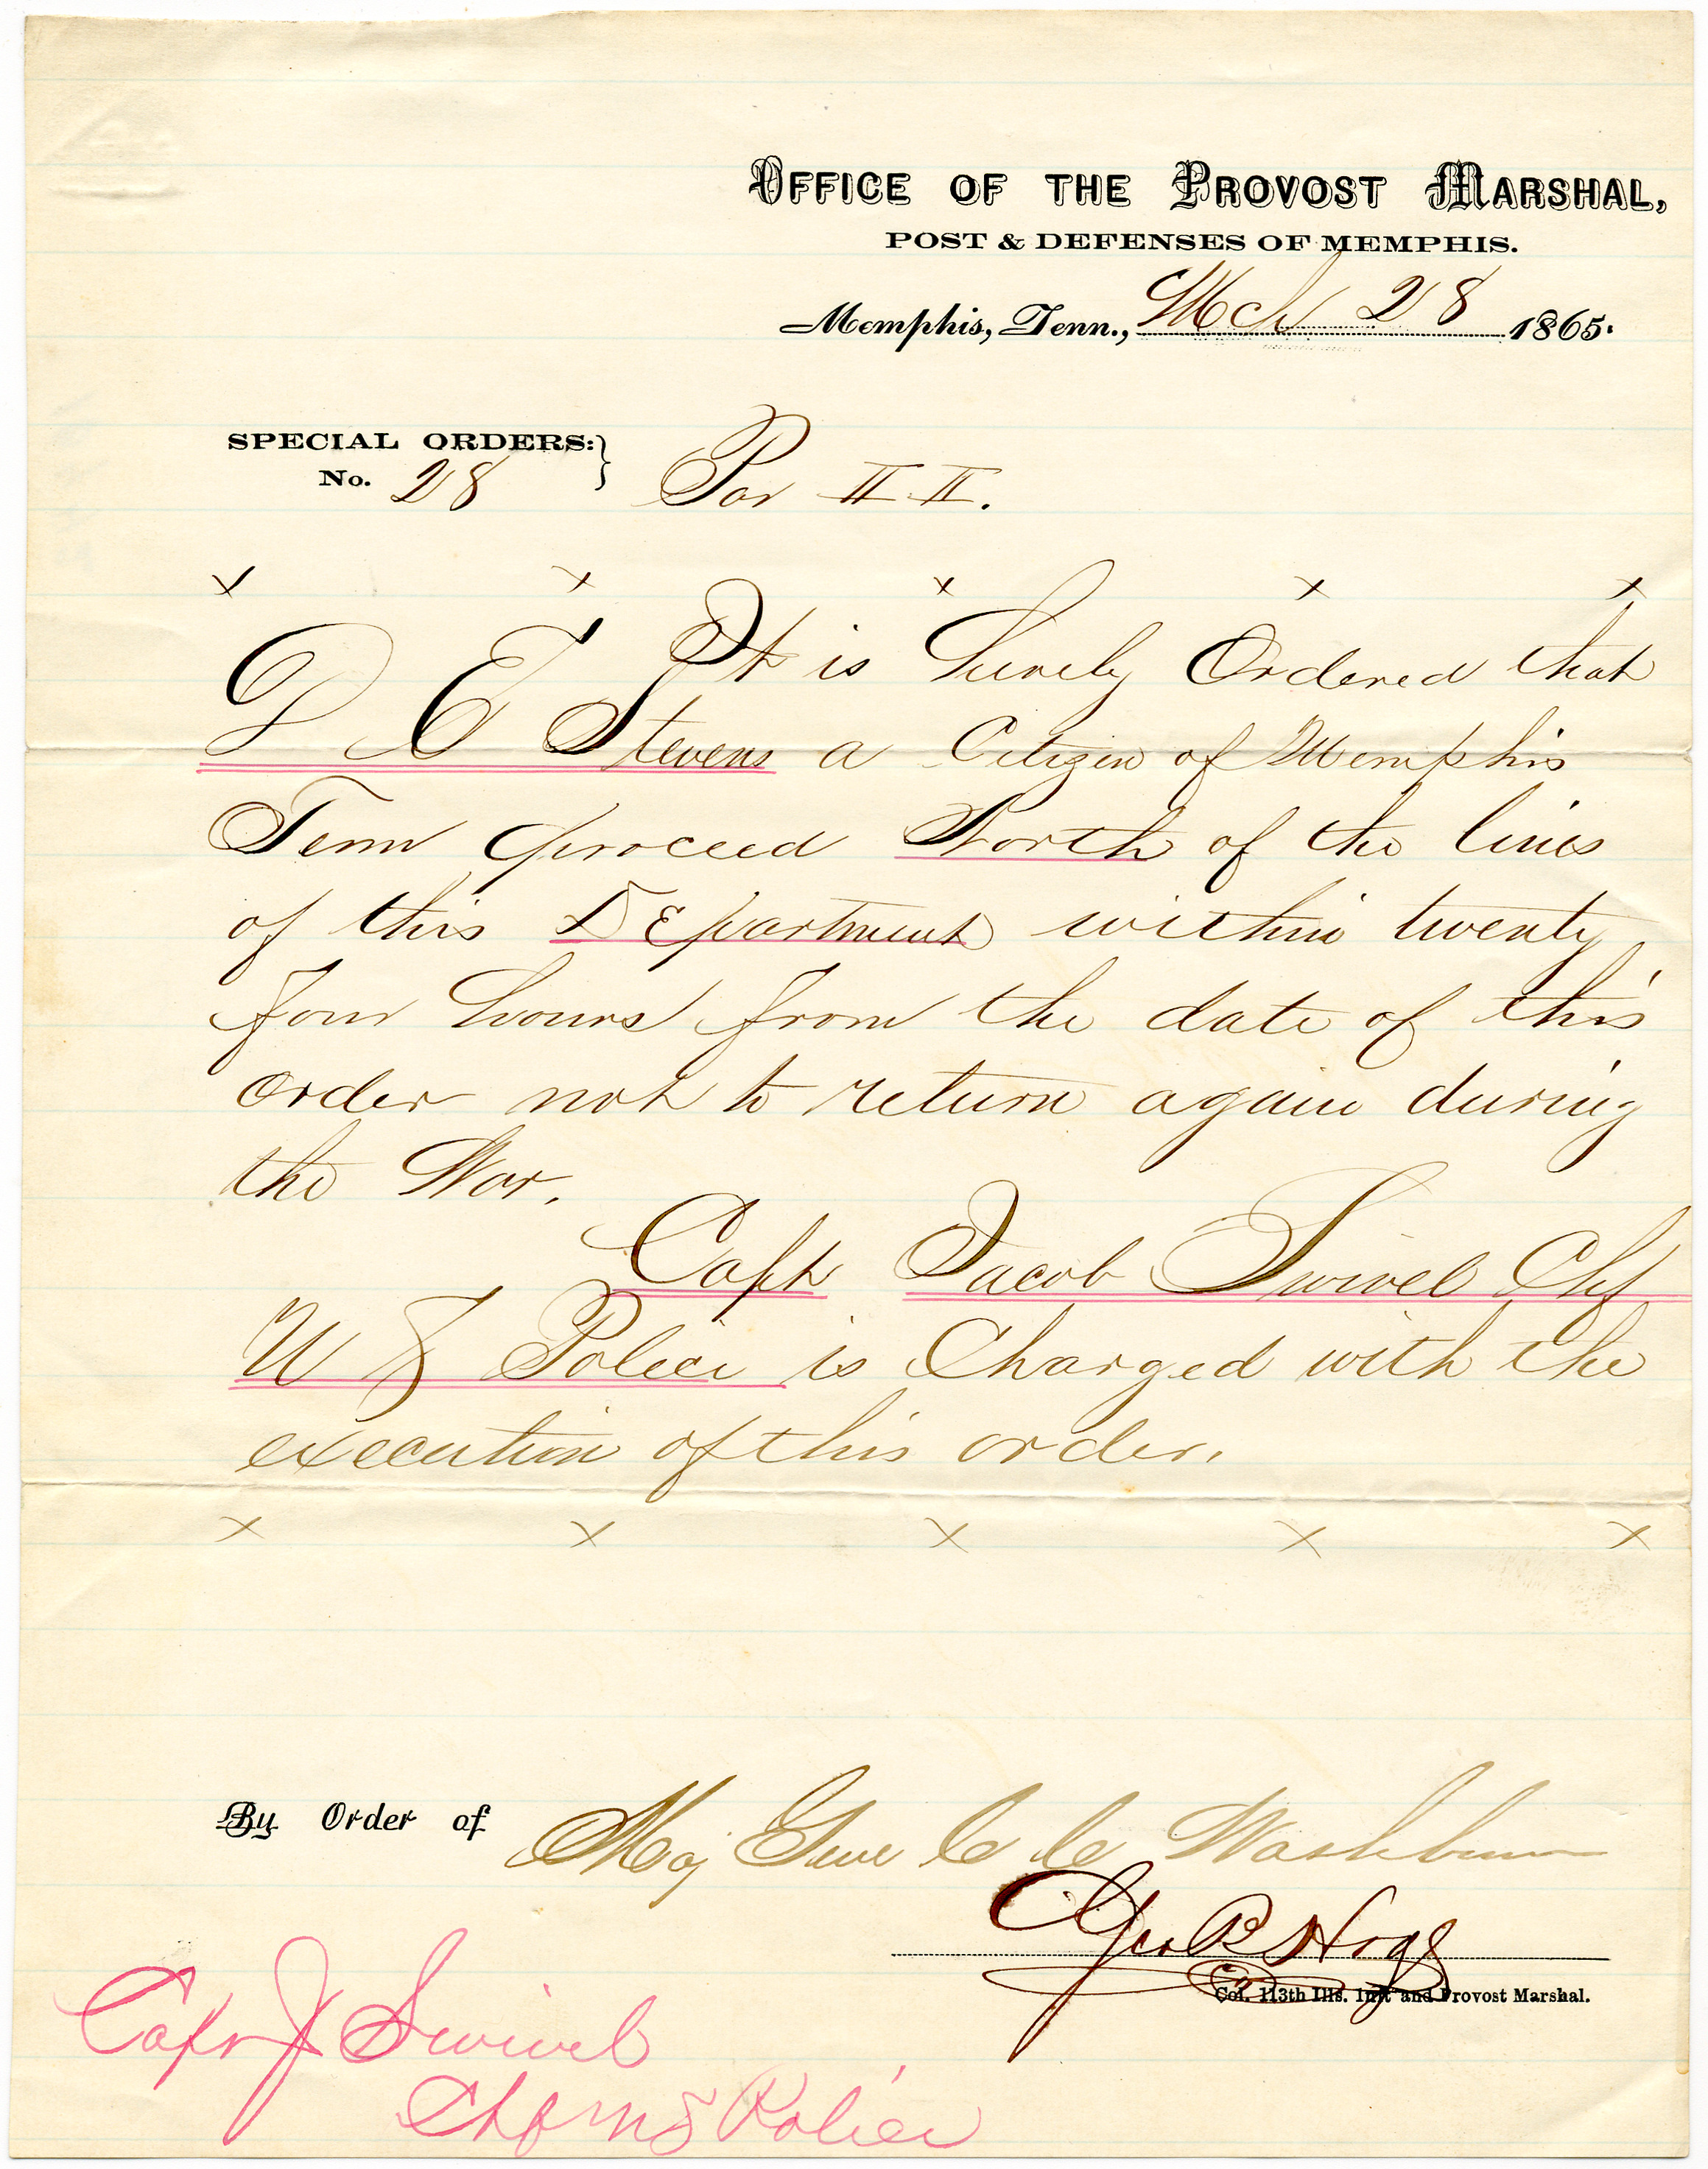 OFFICE OF THE PROVOST MARSHAL,
POST & DEFENSES OF MEMPHIS.
Memphis, Tenn., Mch 28 1865.
SPECIAL ORDERS:}
No. 28 Par II II.
x x x x x
It is hereby Ordered that
D E Stevens a Citizen of Memphis
Tenn proceed North of the lines
of this Department within twenty
four hours from the date of this
order not to return again during
the War.
Capt Jacob Swivel Chf
U S Police is Charged with the
execution of this order.
x x x x x
By Order of Maj Genl C C Washburn
Geo B Hoge
Col. 113th Ills. Inft and Provost Marshal.
Capt J Swivel
Chf U S Police